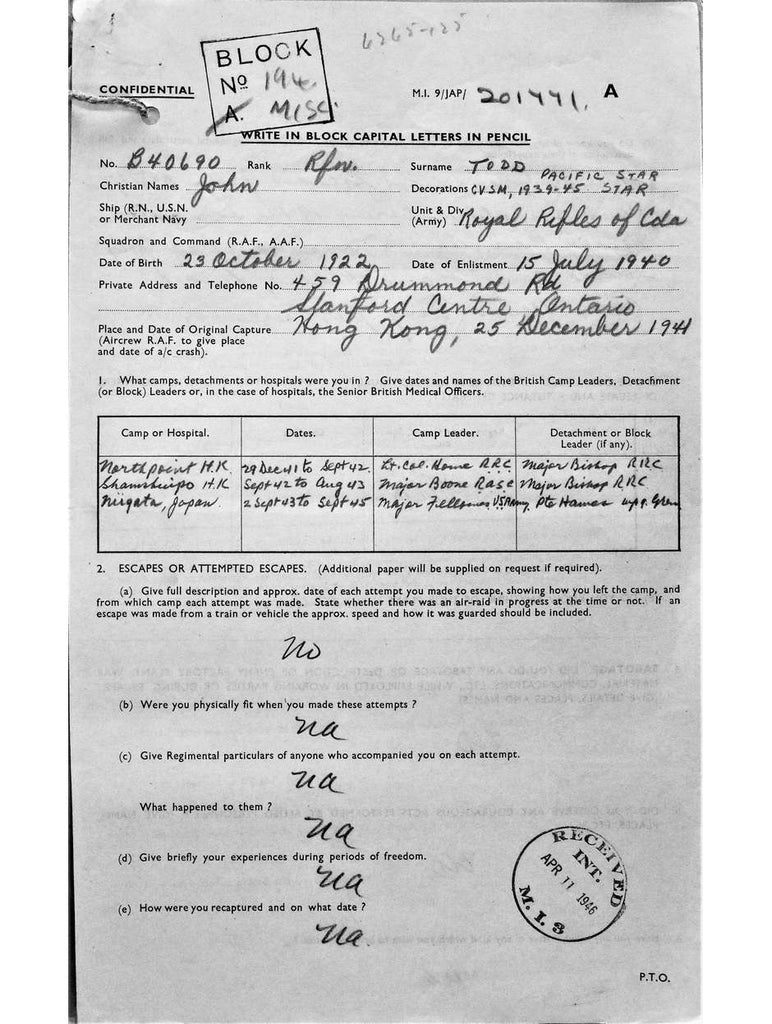 6265-125
BLOCK
Nº 194
A. MISC.
CONFIDENTIAL
M.I. 9/JAP/ 201441. A
WRITE IN BLOCK CAPITAL LETTERS IN PENCIL
No. B40690 Rank Rfn. Surname TODD
Christian Names John Decorations CVSM, 1939-45 STAR PACIFIC STAR
Ship (R.N., U.S.N. or Merchant Navy
Unit & Div. (Army) Royal Rifles of Cda
Squadron and Command (R.A.F., A.A.F.)
Date of Birth 23 October 1922 Date of Enlistment 15 July 1940
Private Address and Telephone No. 459 Drummond Rd
Stanford Centre, Ontario
Place and Date of Original Capture Hong Kong, 25 December 1941
(Aircrew R.A.F. to give place
and date of a/c crash).
1. What camps, detachments or hospitals were you in ? Give dates and names of the British Camp Leaders, Detachment
(or Block) Leaders or, in the case of hospitals, the Senior British Medical Officers.
Camp or Hospital. Dates. Camp Leader. Detachment or Block Leader (if any).
Northpoint H.K. 29 Dec 41 to Sept 42. Lt. Col. Home RRC Major Bishop RRC
Shamshuipo H.K Sept 42 to Aug 43 Major Boone RASC Major Bishop RRC
Niigata, Japan. 2 Sept 43 to Sept 45 Major Fellows US Army Pte Hawes
2. ESCAPES OR ATTEMPTED ESCAPES. (Additional paper will be supplied on request if required).
(a) Give full description and approx. date of each attempt you made to escape, showing how you left the camp, and
from which camp each attempt was made. State whether there was an air-raid in progress at the time or not. If an
escape was made from a train or vehicle the approx. speed and how it was guarded should be included.
No
(b) Were you physically fit when you made these attempts ?
na
(c) Give Regimental particulars of anyone who accompanied you on each attempt.
na
What happened to them ?
na
(d) Give briefly your experiences during periods of freedom.
na
(e) How were you recaptured and on what date ?
na.
RECEIVED
INT.
APR 11 1946
M.I.S
P.T.O.